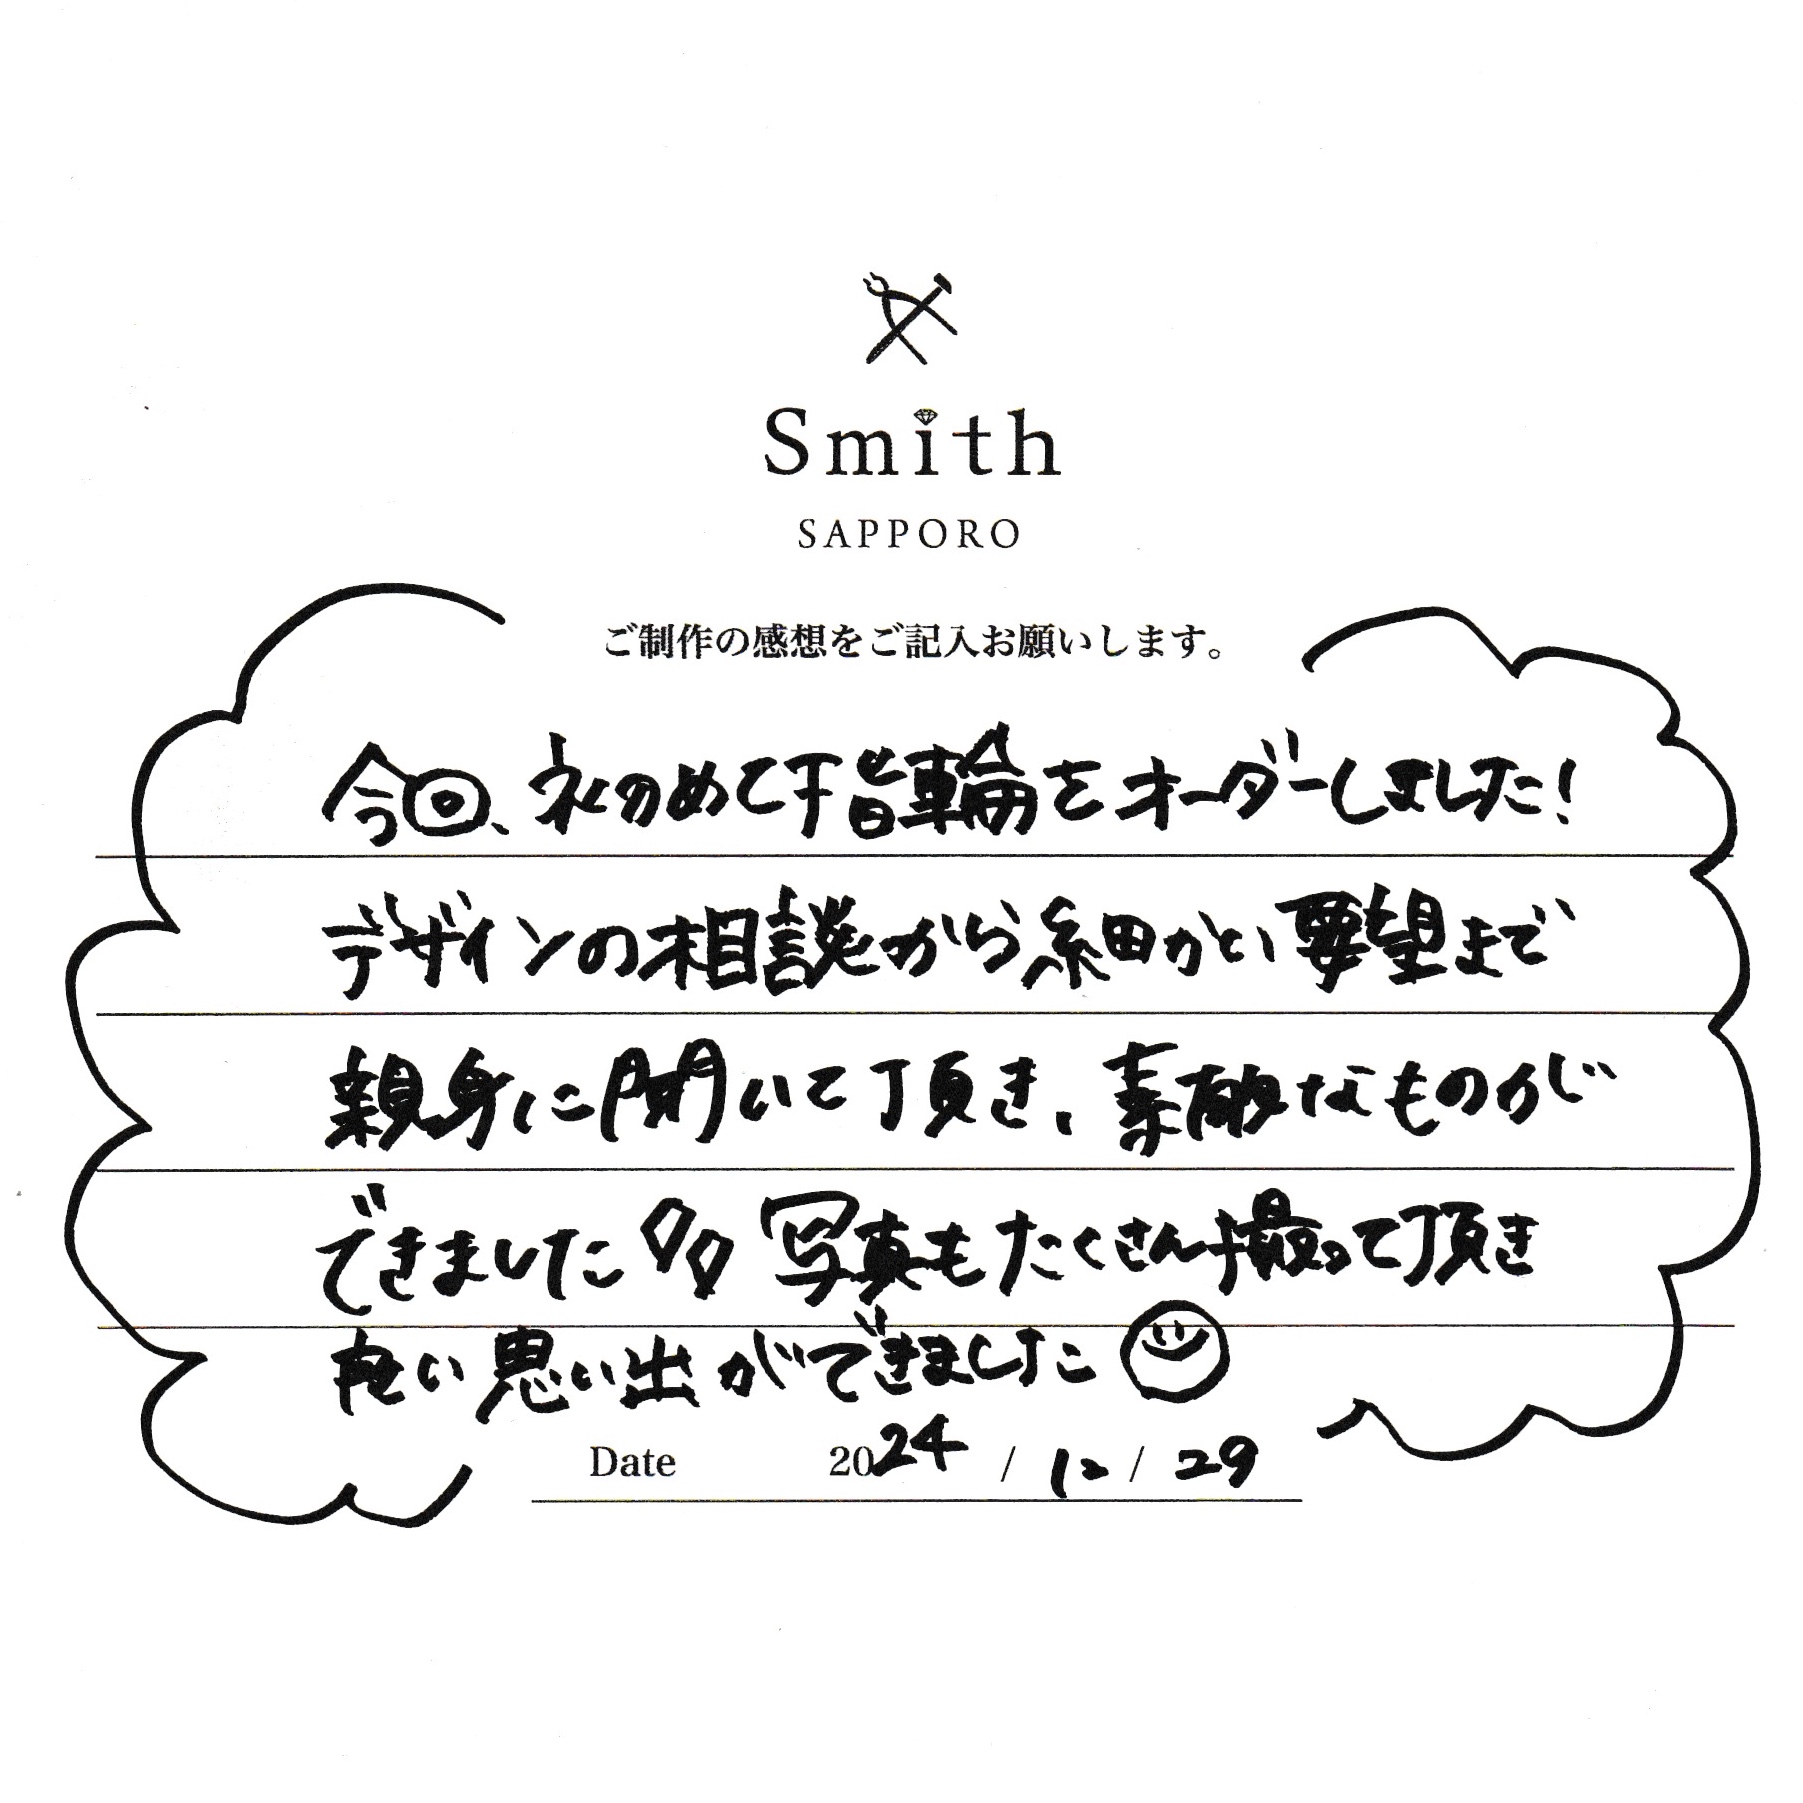 Smith
SAPPORO
ご制作の感想をご記入お願いします。
今回、初めて指輪をオーダーしました!
デザインの相談から細かい要望まで
親身に聞いて頂き、素敵なものが
できました 写真もたくさん撮って頂き
良い思い出ができました
Date 2024 / 12 / 29